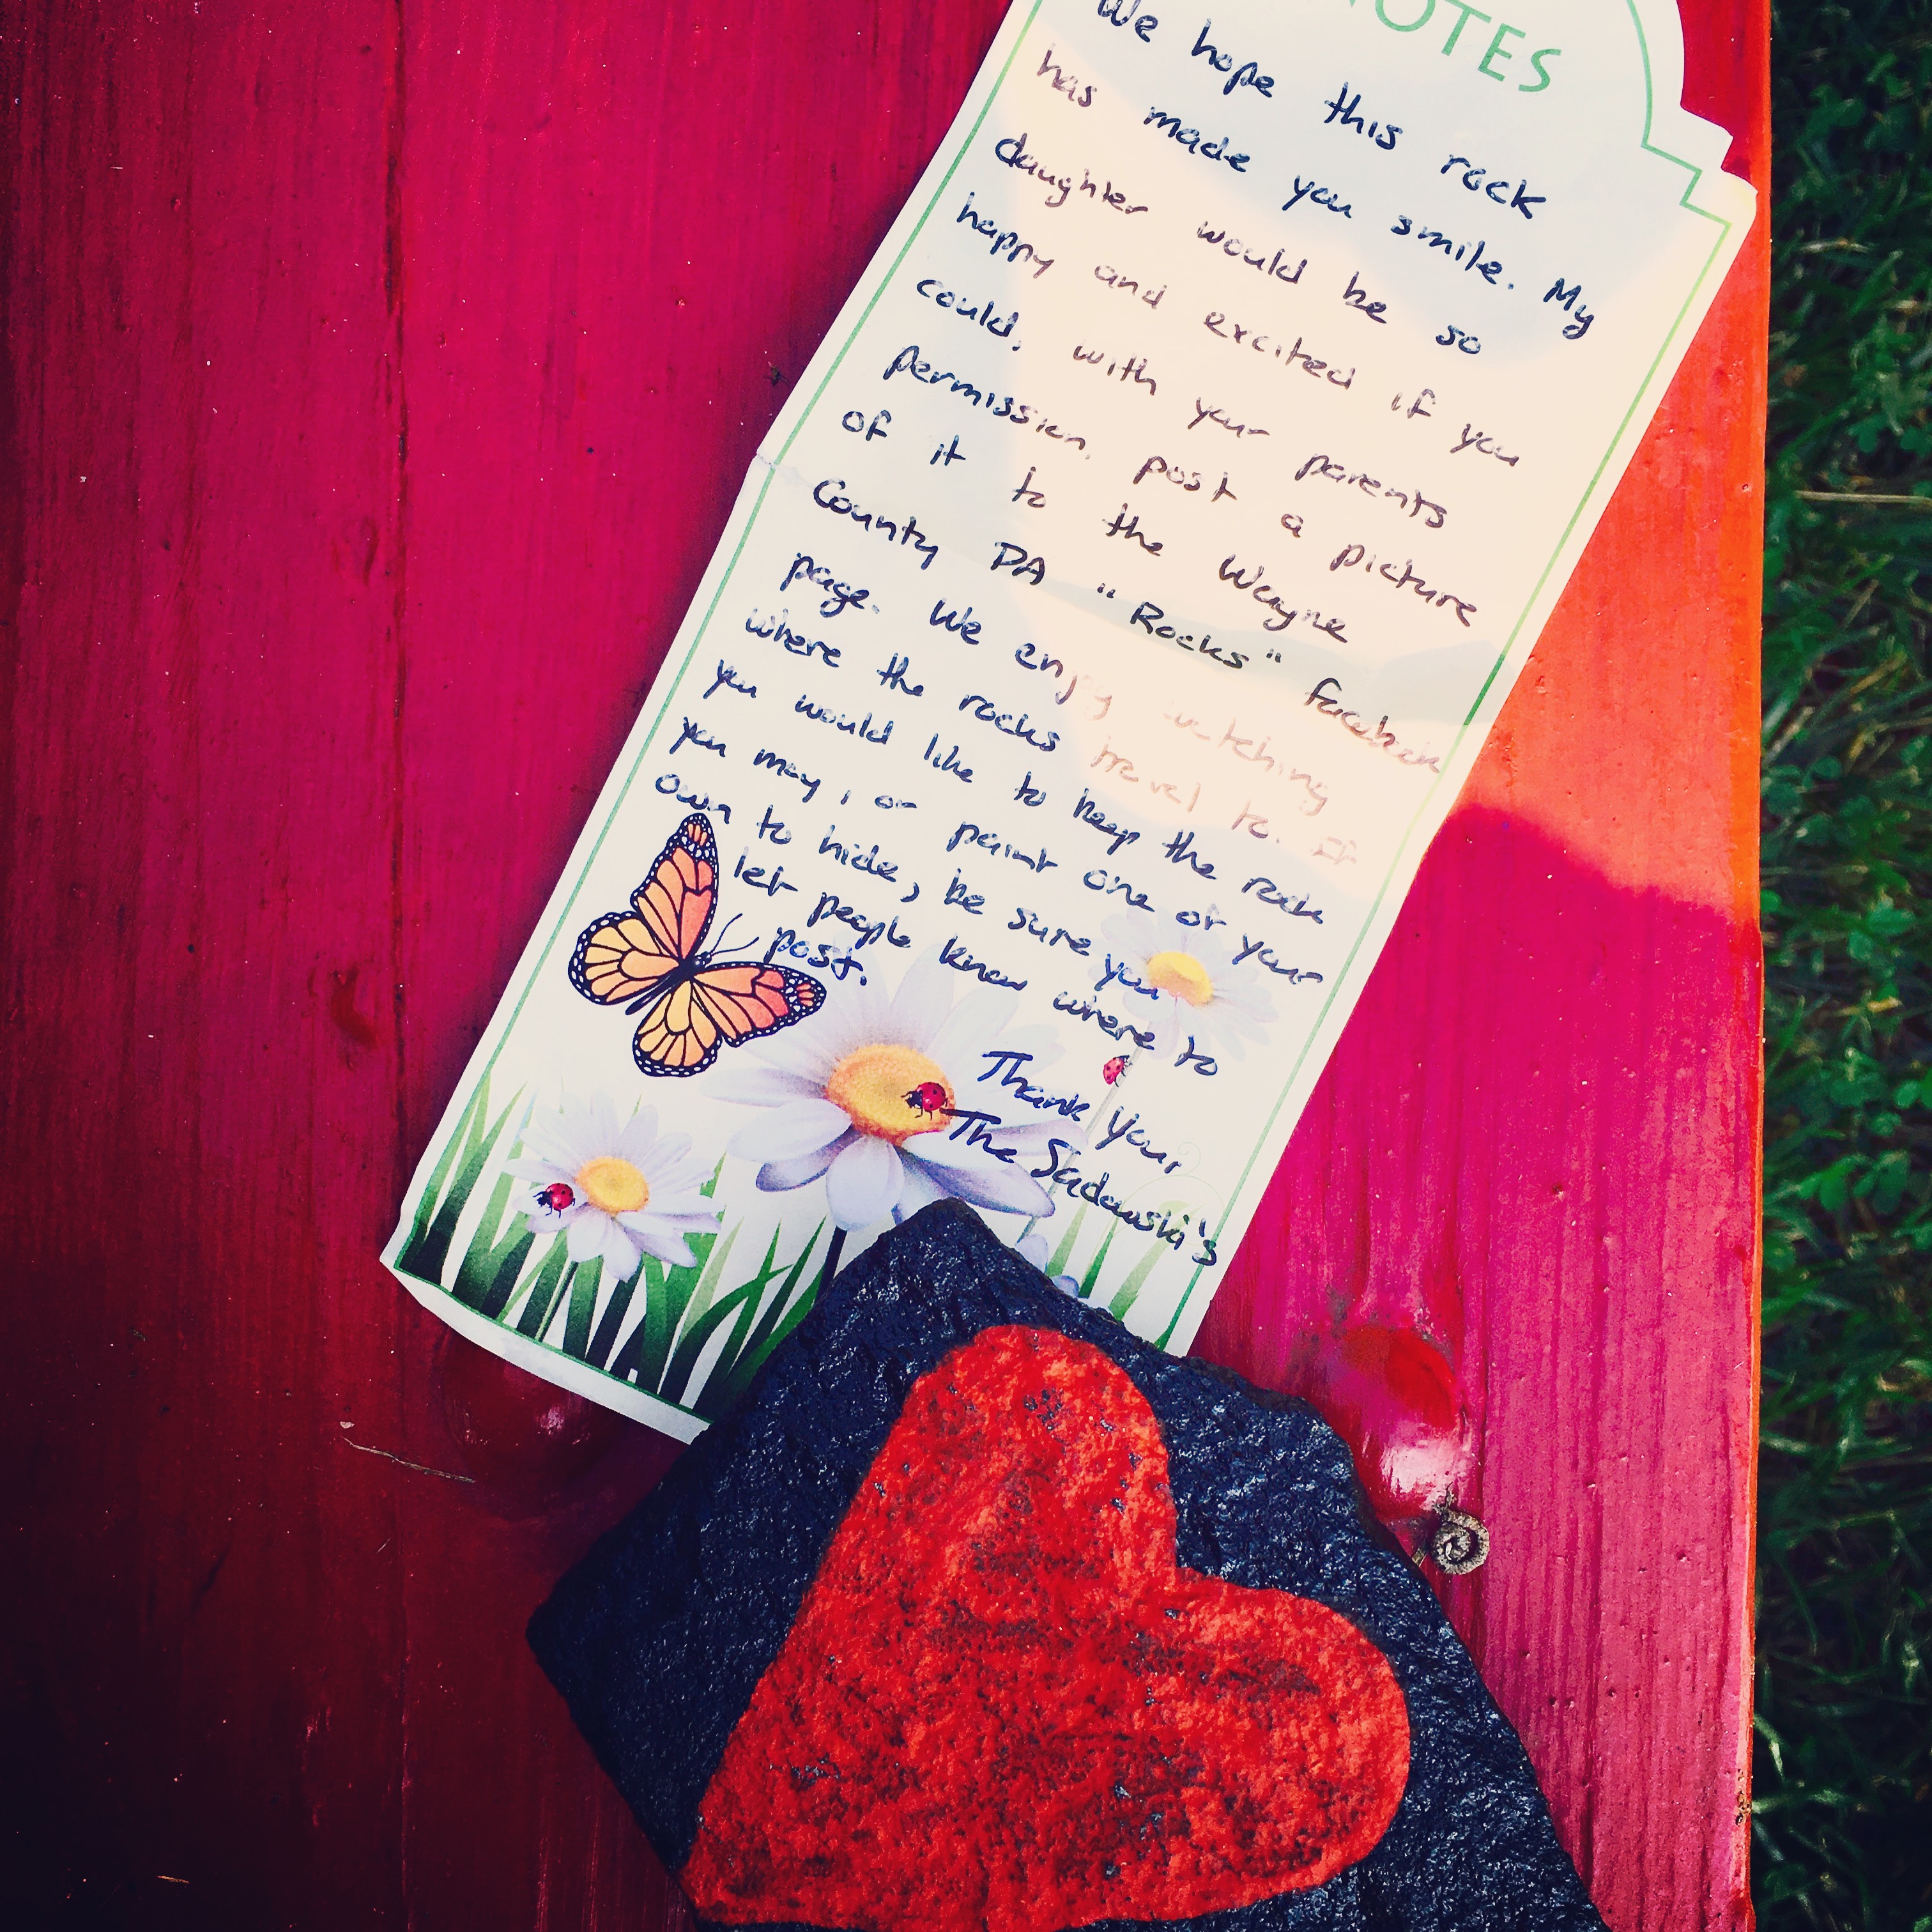 NOTES
We hope this rock
has made you smile. My
daughter would be so
happy and excited if you
could, with your parents
permission, post a picture
of it to the Wayne
County PA "Rocks" facebook
page. We enjoy watching
where the rocks travel to. If
you would like to keep the rock
you may, or paint one of your
own to hide, be sure you
let people know where to
post.
Thank You,
The Sadowski's